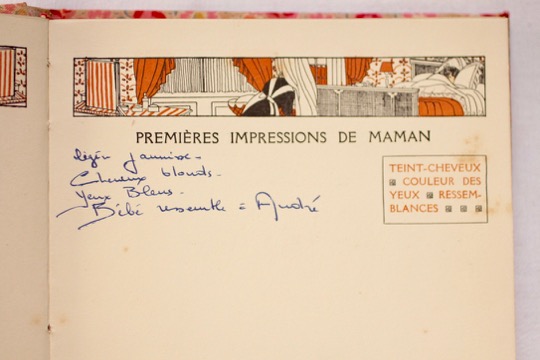 PREMIÈRES IMPRESSIONS DE MAMAN
léger jaunisse -
Cheveux blonds -
Yeux Bleus -
Bébé ressemble = André
TEINT-CHEVEUX
COULEUR DES
YEUX RESSEM-
BLANCES